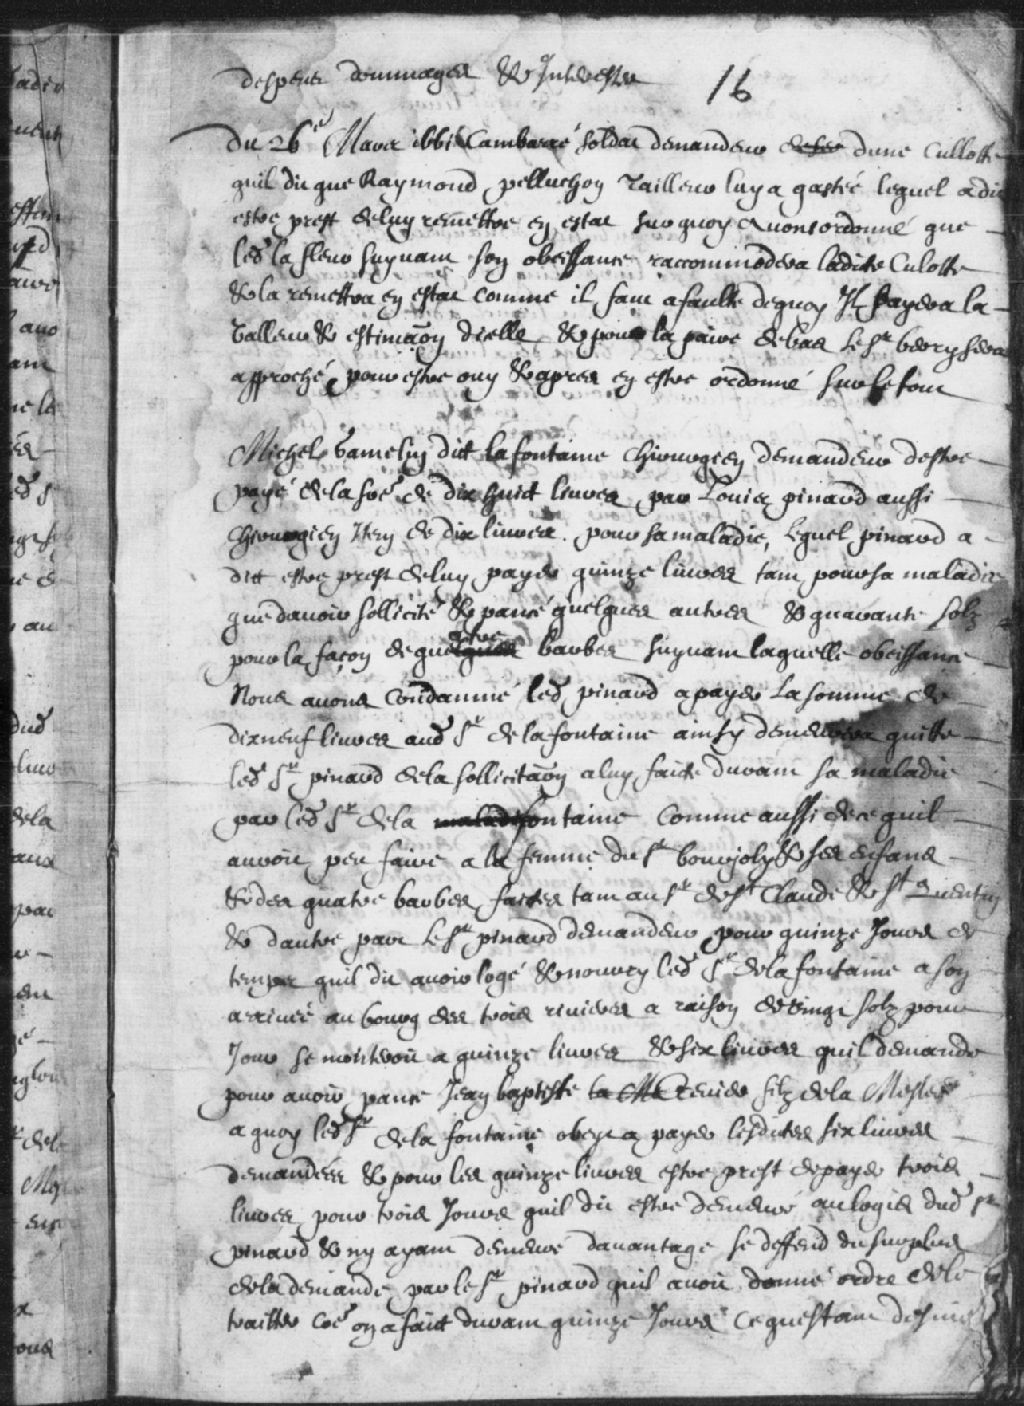 despens dommages & Interestz
16
Du 26e Mars 1661 Cambarré soldat demandeur dune Cullotte
quil dit que Raymond pelluchon Tailleur luy a gastée lequel a dit
estre prest deluy remettre en estat surquoy avons ordonné que
led la fleur suyvant son obeissance raccommodera ladite Culotte
& la remettra en estat comme il faut a faulte dequoy Il payera la
valleur & estimaõn dicelle & pour la paire debas le Sr bery sera
approché pour estre ouy & apres en estre ordonné sur le tout
Michel Gamelin dict lafontaine chirurgien demandeur destre
payé dela soê de dix huict livres par Louis pinard aussi
chirurgien Item de dix livres pour sa maladie, lequel pinard a
dict estre prest deluy payer quinze livres tant pour sa maladie
que davoir sollicité & pancé quelques autres & quarante solz
pour la façon de quatre barbes suyvant laquelle obeissance
Nous avons condamné led pinard a payer La somme de
dixneuf livres aud Sr de lafontaine ainsy demeurera quitte
led Sr pinard dela sollicitaõn aluy faicte durant sa maladie
par led Sr de la fontaine comme aussi de ce quil
auroit peu faire a la femme du Sr bourjoly & ses enfans
& des quatre barbes faictes tant au Sr de St Claude & St Quentin
& dautre part le Sr pinard demandeur pour quinze Jours de
temps quil dit avoir logé & nourry led Sr dela fontaine a son
arrivée au bourg des trois rivieres a raison de vingt solz pour
Jour se montvoit a quinze livres & six livres quil demande
pour avoir pancé Jean baptiste filz dela Meslée
a quoy led Sr de la fontaine obeye a payer lesdites six livres
demandées & pour les quinze livres estre prest de payer trois
livres pour trois Jours quil dit estre demeuré au logis dud Sr
pinard & ny ayant demeuré davantage se deffend du surplus
dela demande par le Sr pinard quil avoit donné ordre de le
traitter coê on a fait durant quinze Jours ce questant